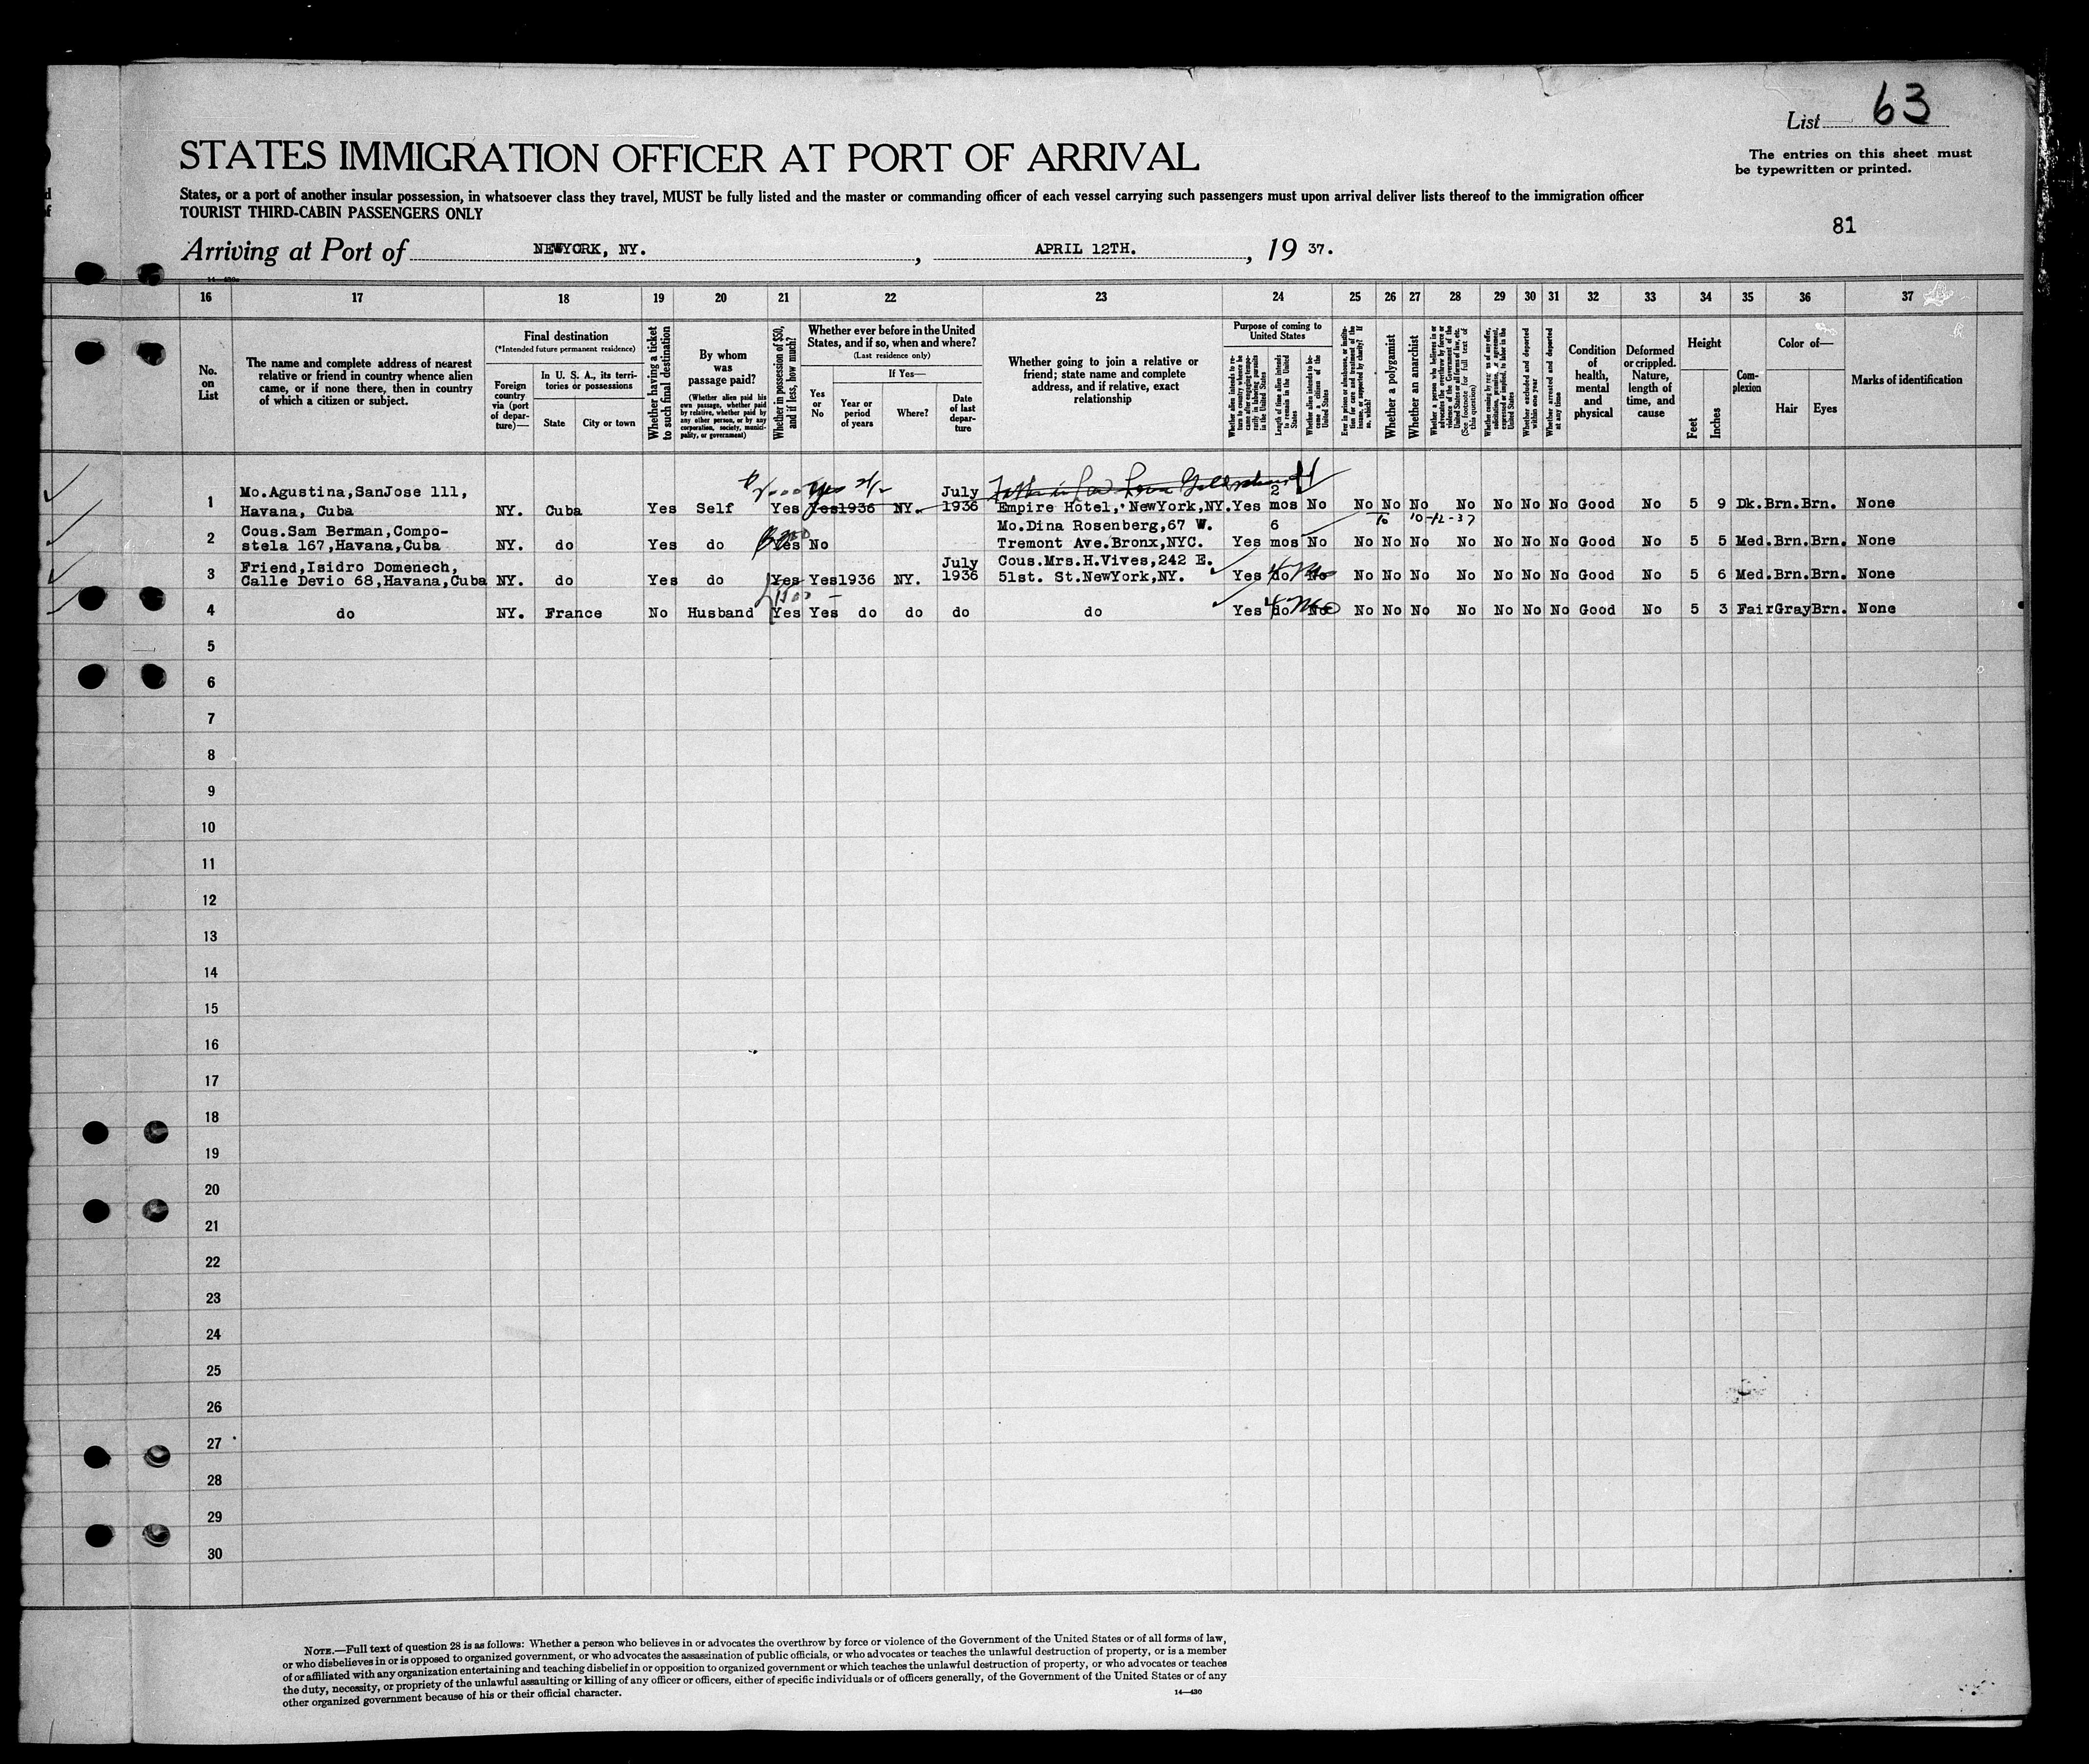 List 63
STATES IMMIGRATION OFFICER AT PORT OF ARRIVAL
The entries on this sheet must
be typewritten or printed.
States, or a port of another insular possession, in whatsoever class they travel, MUST be fully listed and the master or commanding officer of each vessel carrying such passengers must upon arrival deliver lists thereof to the immigration officer
TOURIST THIRD-CABIN PASSENGERS ONLY
81
Arriving at Port of NEWYORK, NY. , APRIL 12TH. , 19 37.
16 17 18 19 20 21 22 23 24 25 26 27 28 29 30 31 32 33 34 35 36 37
No. on List
The name and complete address of nearest relative or friend in country whence alien came, or if none there, then in country of which a citizen or subject.
Final destination
(*Intended future permanent residence)
Foreign country via (port of departure)—
In U. S. A., its territories or possessions
State
City or town
Whether having a ticket to such final destination
By whom was passage paid?
(Whether alien paid his own passage, whether paid by relative, whether paid by any other person, or by any corporation, society, municipality, or government)
Whether in possession of $50, and if less, how much?
Whether ever before in the United States, and if so, when and where?
(Last residence only)
If Yes—
Yes or No
Year or period of years
Where?
Date of last departure
Whether going to join a relative or friend; state name and complete address, and if relative, exact relationship
Purpose of coming to United States
Length of time alien intends to remain in the United States
Whether alien intends to become a citizen of the United States
Whether a polygamist
Whether an anarchist
(See footnote for full text of this question)
Whether excluded and deported within one year
Whether arrested and deported at any time
Condition of health, mental and physical
Deformed or crippled. Nature, length of time, and cause
Height
Feet
Inches
Complexion
Color of—
Hair
Eyes
Marks of identification
1 Mo.Agustina,SanJose 111, Havana, Cuba NY. Cuba Yes Self Yes Yes 1936 NY. July 1936 Empire Hotel, NewYork,NY. Yes 2 mos No No No No No No No No Good No 5 9 Dk. Brn. Brn. None
to 10-12-37
2 Cous.Sam Berman,Compo-stela 167,Havana,Cuba NY. do Yes do Yes No Mo.Dina Rosenberg,67 W. Tremont Ave.Bronx,NYC. Yes 6 mos No No No No No No No No Good No 5 5 Med. Brn. Brn. None
3 Friend,Isidro Domenech, Calle Devio 68,Havana,Cuba NY. do Yes do Yes Yes 1936 NY. July 1936 Cous.Mrs.H.Vives,242 E. 51st. St.NewYork,NY. Yes do No No No No No No No No Good No 5 6 Med. Brn. Brn. None
4 do NY. France No Husband Yes Yes do do do do Yes do No No No No No No No No Good No 5 3 Fair Gray Brn. None
5
6
7
8
9
10
11
12
13
14
15
16
17
18
19
20
21
22
23
24
25
26
27
28
29
30
NOTE.—Full text of question 28 is as follows: Whether a person who believes in or advocates the overthrow by force or violence of the Government of the United States or of all forms of law,
or who disbelieves in or is opposed to organized government, or who advocates the assassination of public officials, or who advocates or teaches the unlawful destruction of property, or is a member
of or affiliated with any organization entertaining and teaching disbelief in or opposition to organized government or which teaches the unlawful destruction of property, or who advocates or teaches
the duty, necessity, or propriety of the unlawful assaulting or killing of any officer or officers, either of specific individuals or of officers generally, of the Government of the United States or of any
other organized government because of his or their official character.
14—430